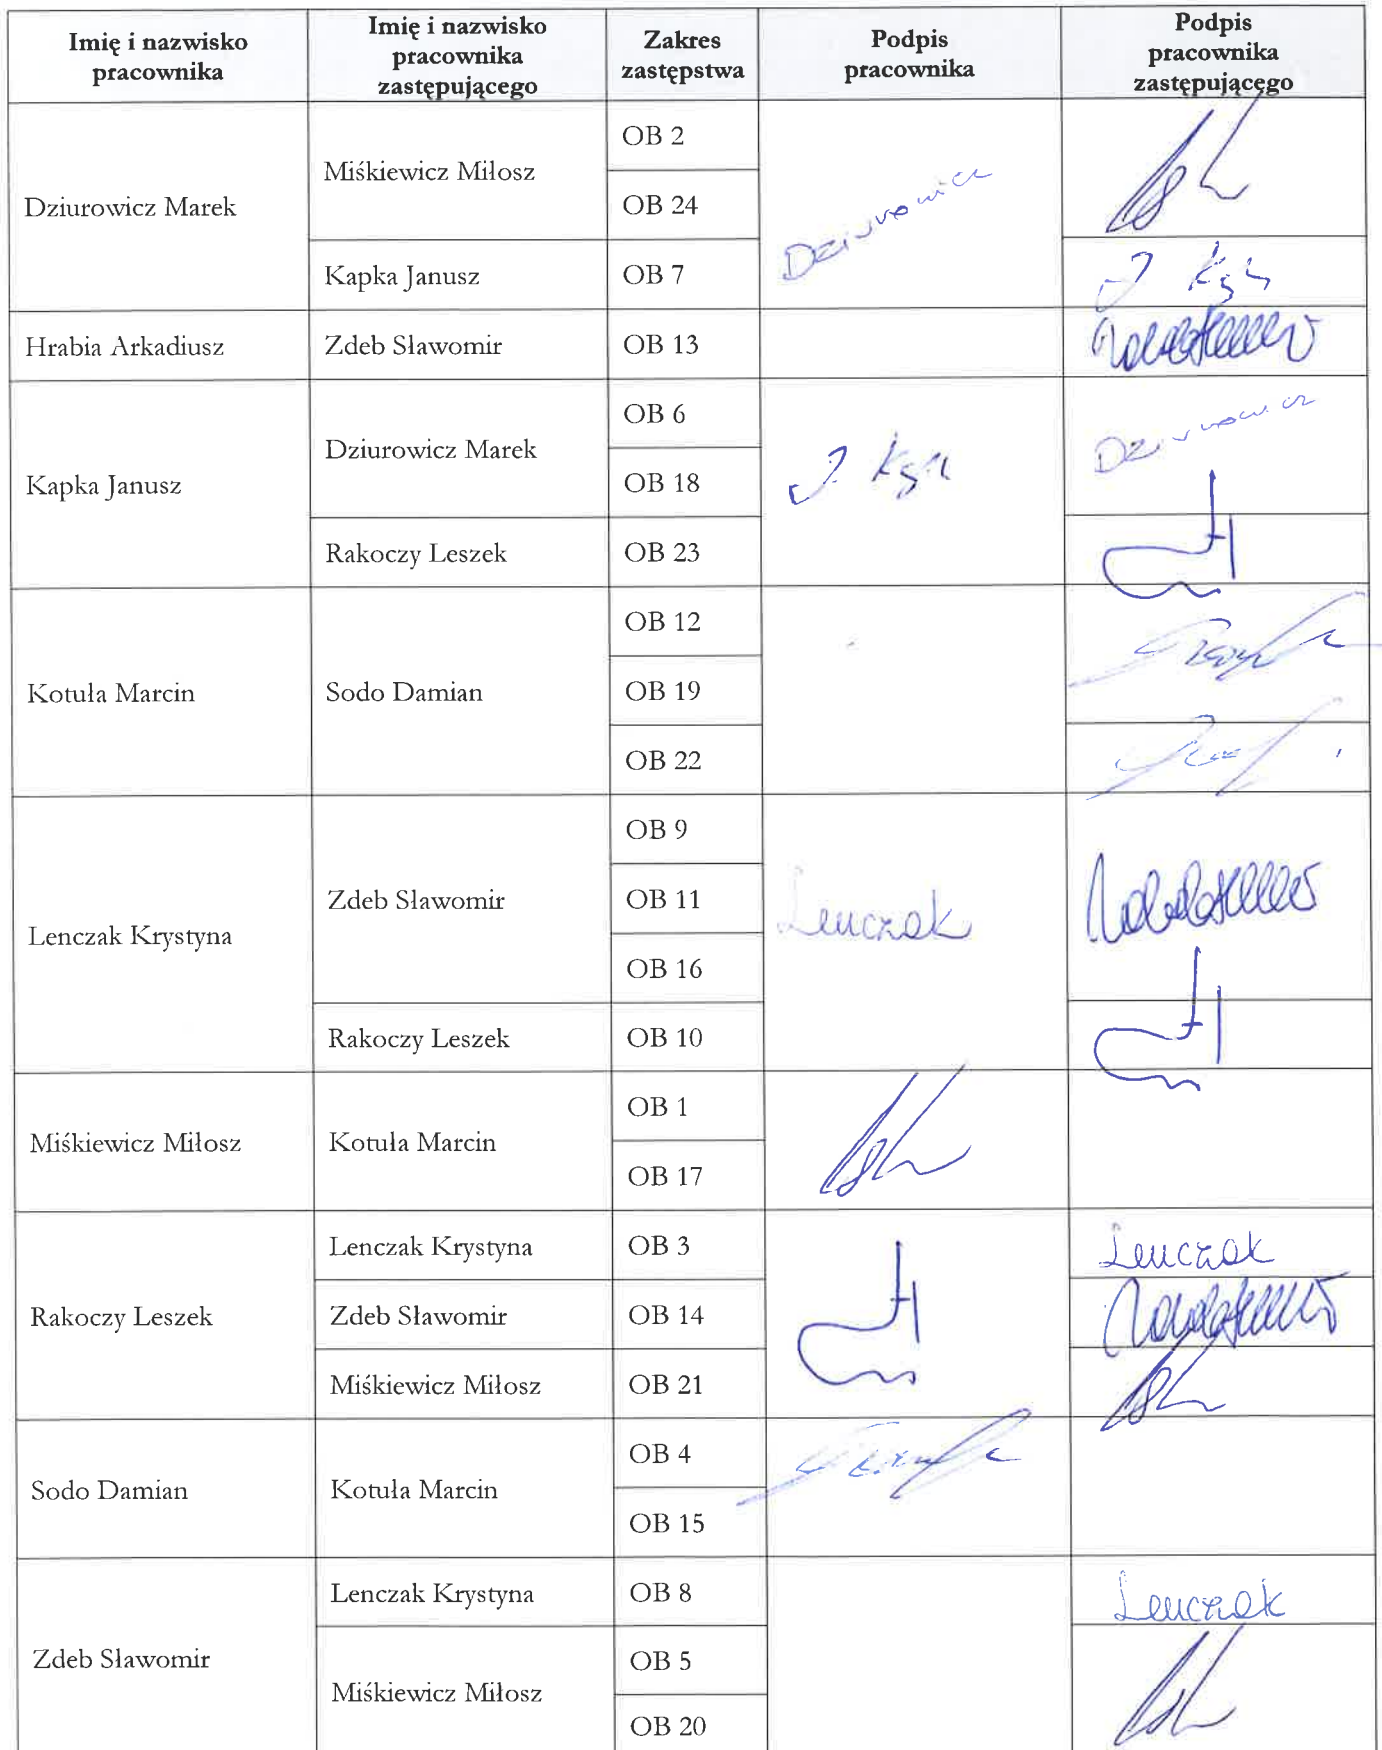 Imię i nazwisko pracownika
Imię i nazwisko pracownika zastępującego
Zakres zastępstwa
Podpis pracownika
Podpis pracownika zastępującego
Dziurowicz Marek
Miśkiewicz Miłosz
OB 2
OB 24
Dziurowicz
Kapka Janusz
OB 7
Hrabia Arkadiusz
Zdeb Sławomir
OB 13
Kapka Janusz
Dziurowicz Marek
OB 6
OB 18
Dziurowicz
Rakoczy Leszek
OB 23
Kotuła Marcin
Sodo Damian
OB 12
OB 19
OB 22
Lenczak Krystyna
Zdeb Sławomir
OB 9
OB 11
OB 16
Lenczak
Rakoczy Leszek
OB 10
Miśkiewicz Miłosz
Kotuła Marcin
OB 1
OB 17
Rakoczy Leszek
Lenczak Krystyna
OB 3
Lenczak
Zdeb Sławomir
OB 14
Miśkiewicz Miłosz
OB 21
Sodo Damian
Kotuła Marcin
OB 4
OB 15
Zdeb Sławomir
Lenczak Krystyna
OB 8
Lenczak
Miśkiewicz Miłosz
OB 5
OB 20